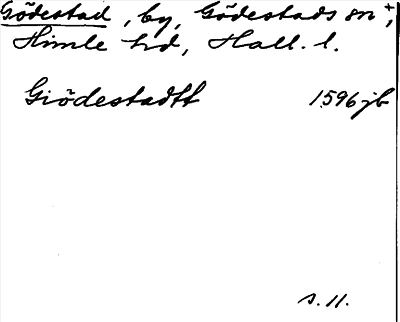 Gödestad, by, Gödestads sn+,
Himle hd, Hall. l.
Giödestadtt 1596 jb
s. 11.